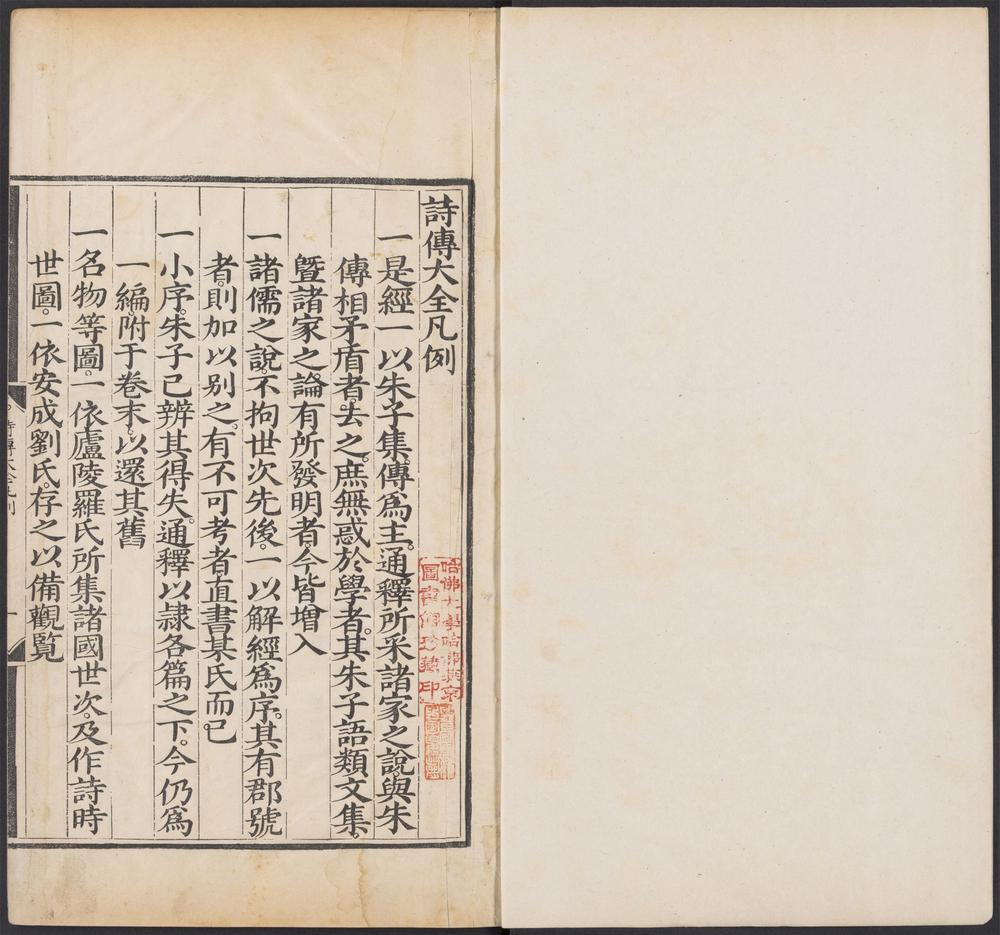 詩傳大全凡例
一是經一以朱子集傳爲主。通釋所采諸家之說。與朱
傳相矛盾者。去之。庶無惑於學者。其朱子語類文集。
曁諸家之論有所發明者。今皆增入
一諸儒之說。不拘世次先後。一以解經爲序。其有郡號
者。則加以别之。有不可考者。直書某氏而已
一小序。朱子已辨其得失。通釋以隷各篇之下。今仍爲
一編。附于卷末。以還其舊
一名物等圖。一依廬陵羅氏所集諸國世次。及作詩時
世圖。一依安成劉氏。存之以備觀覧
哈佛大學哈佛燕京
圖書館珍藏印